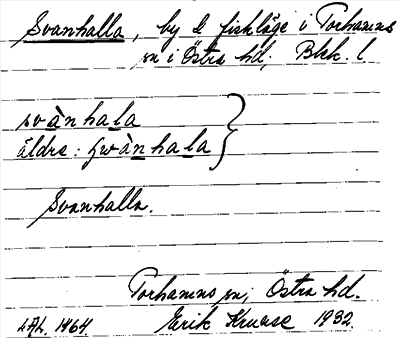 Svanhalla, by & fiskläge i Torhamns
sn i Östra hd, Blek. l
svànhala
äldre: swànhala
Svanhalla.
Torhamns sn, Östra hd.
Erik Kruuse 1932.